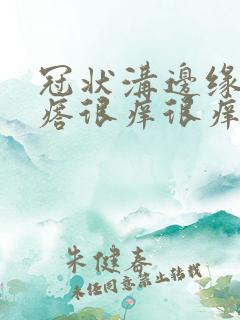 冠状溝邊缘
痞很痒很痒
朱健春
未经同意禁止转载